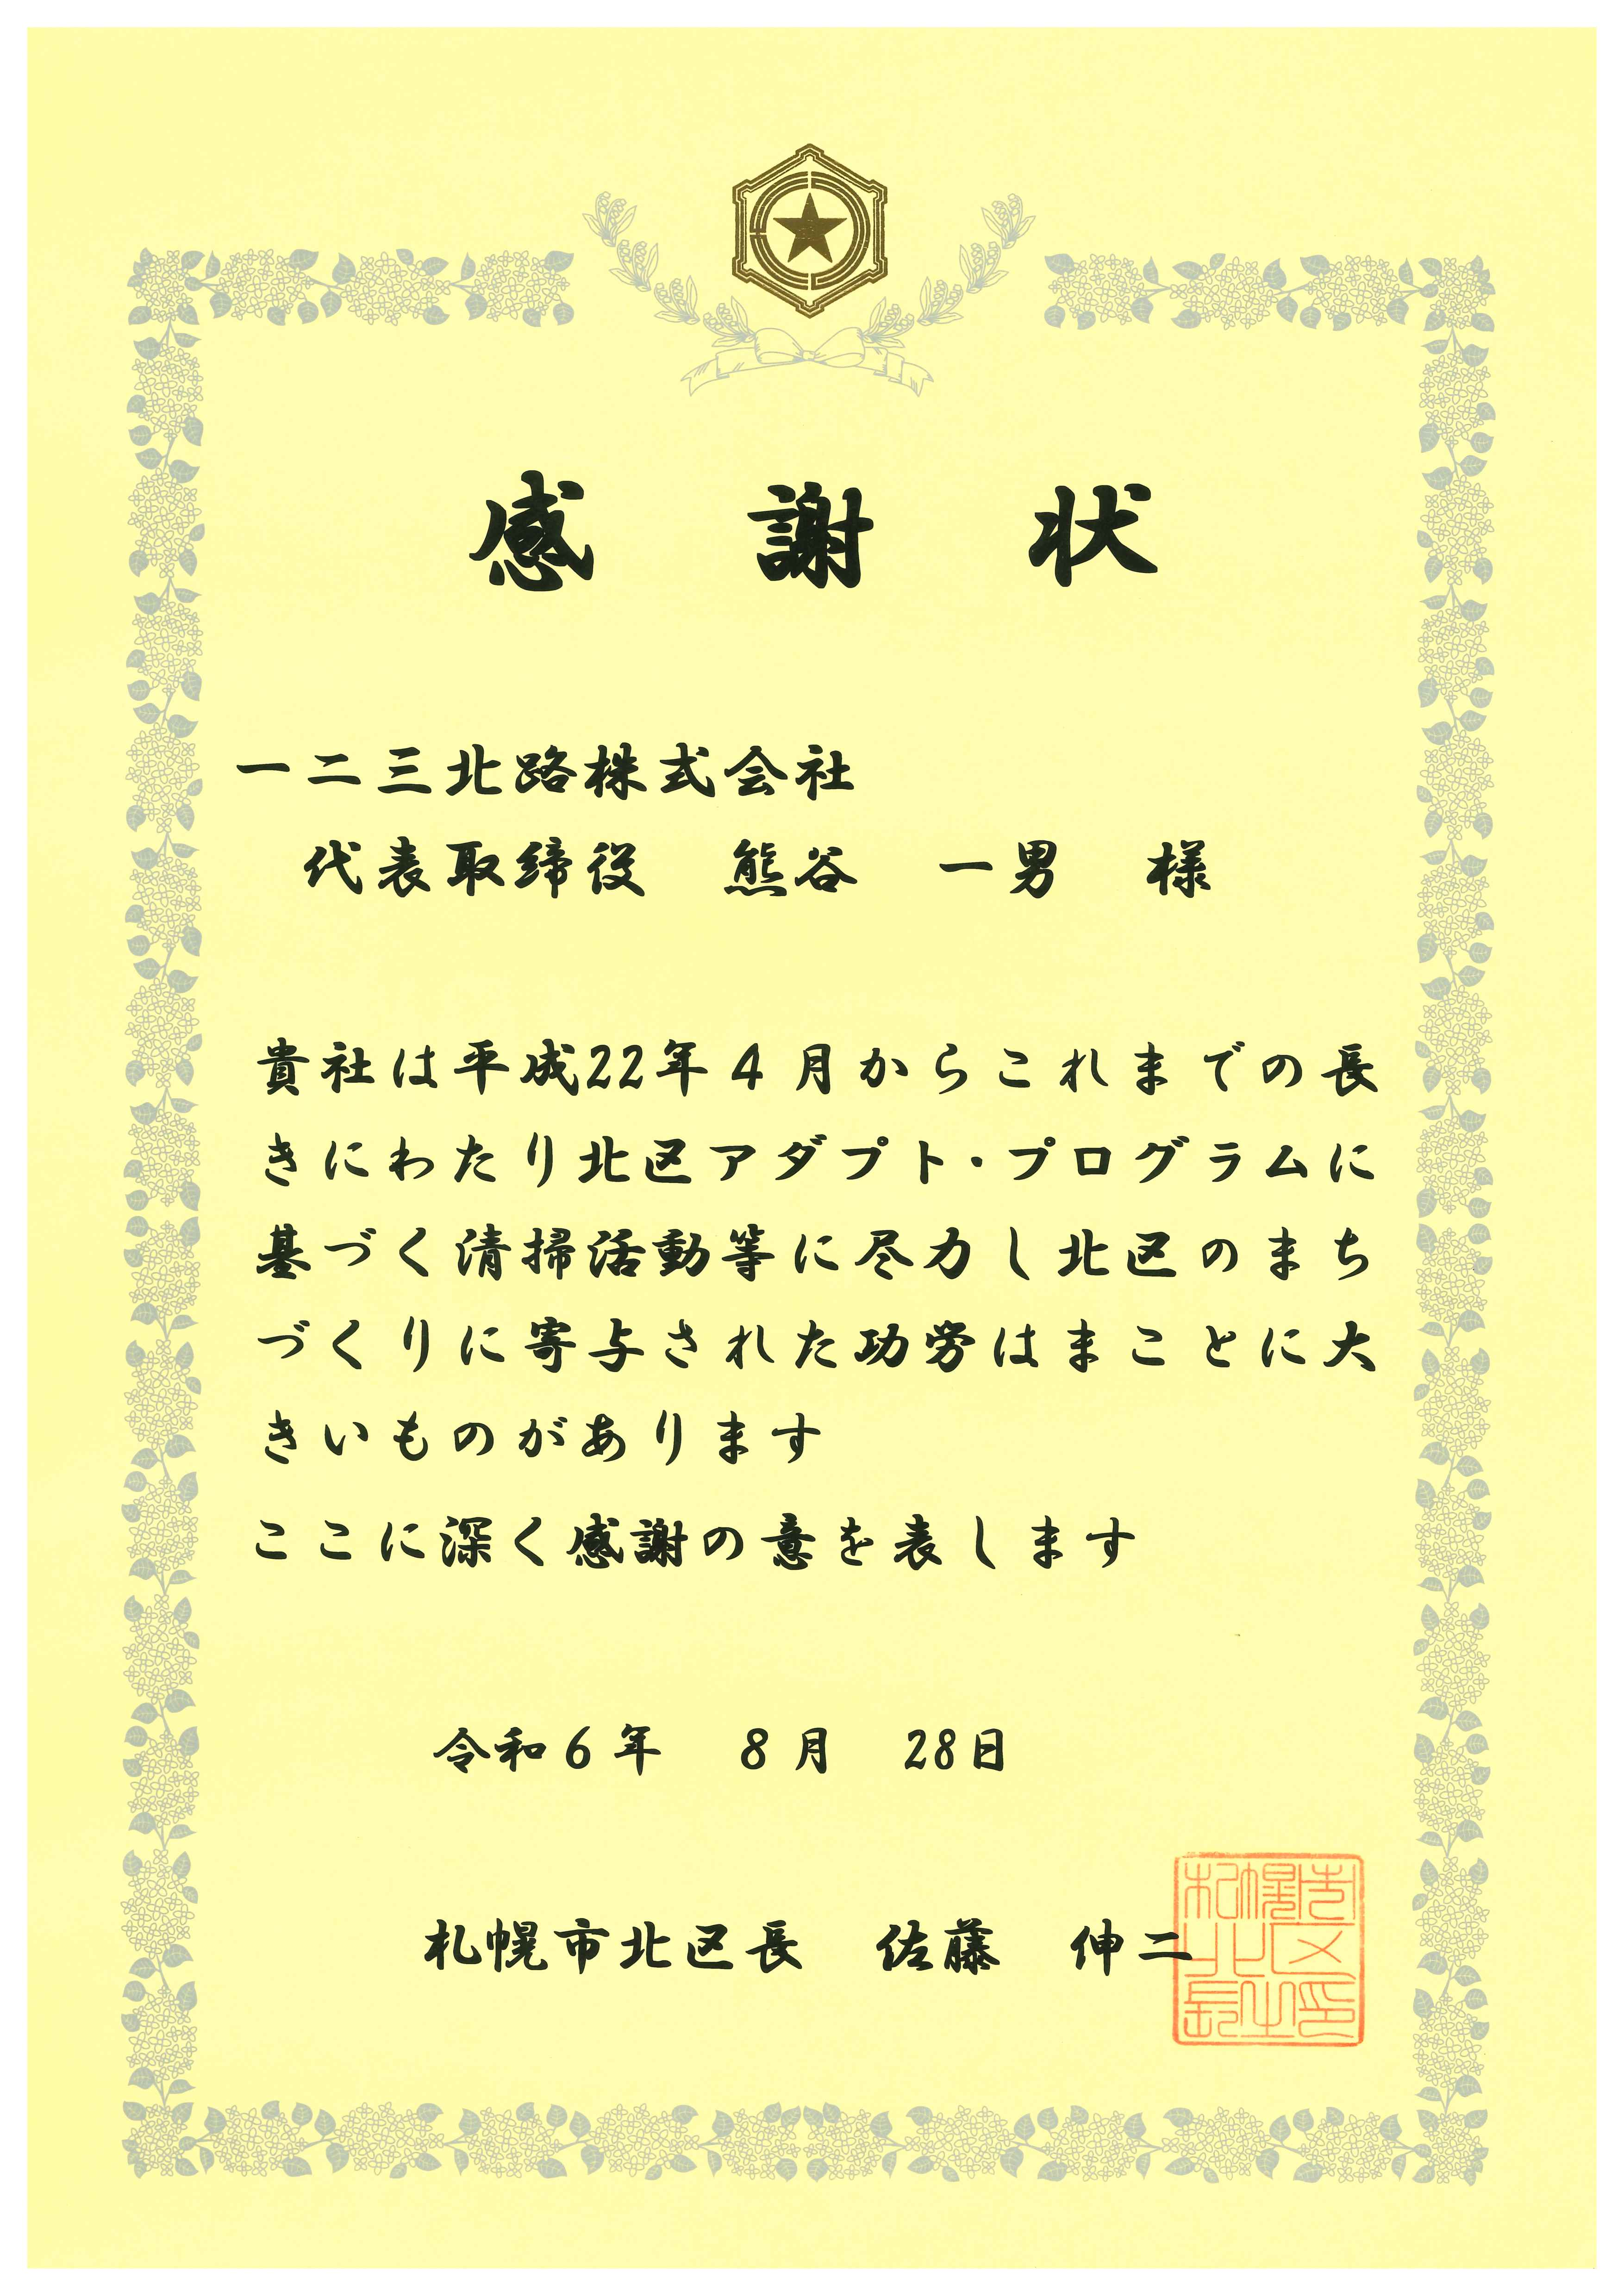 感謝状
一二三北路株式会社
代表取締役 熊谷 一男 様
貴社は平成22年4月からこれまでの長
きにわたり北区アダプト・プログラムに
基づく清掃活動等に尽力し北区のまち
づくりに寄与された功労はまことに大
きいものがあります
ここに深く感謝の意を表します
令和6年 8月 28日
札幌市北区長 佐藤 伸二
札幌市
北区
長之印